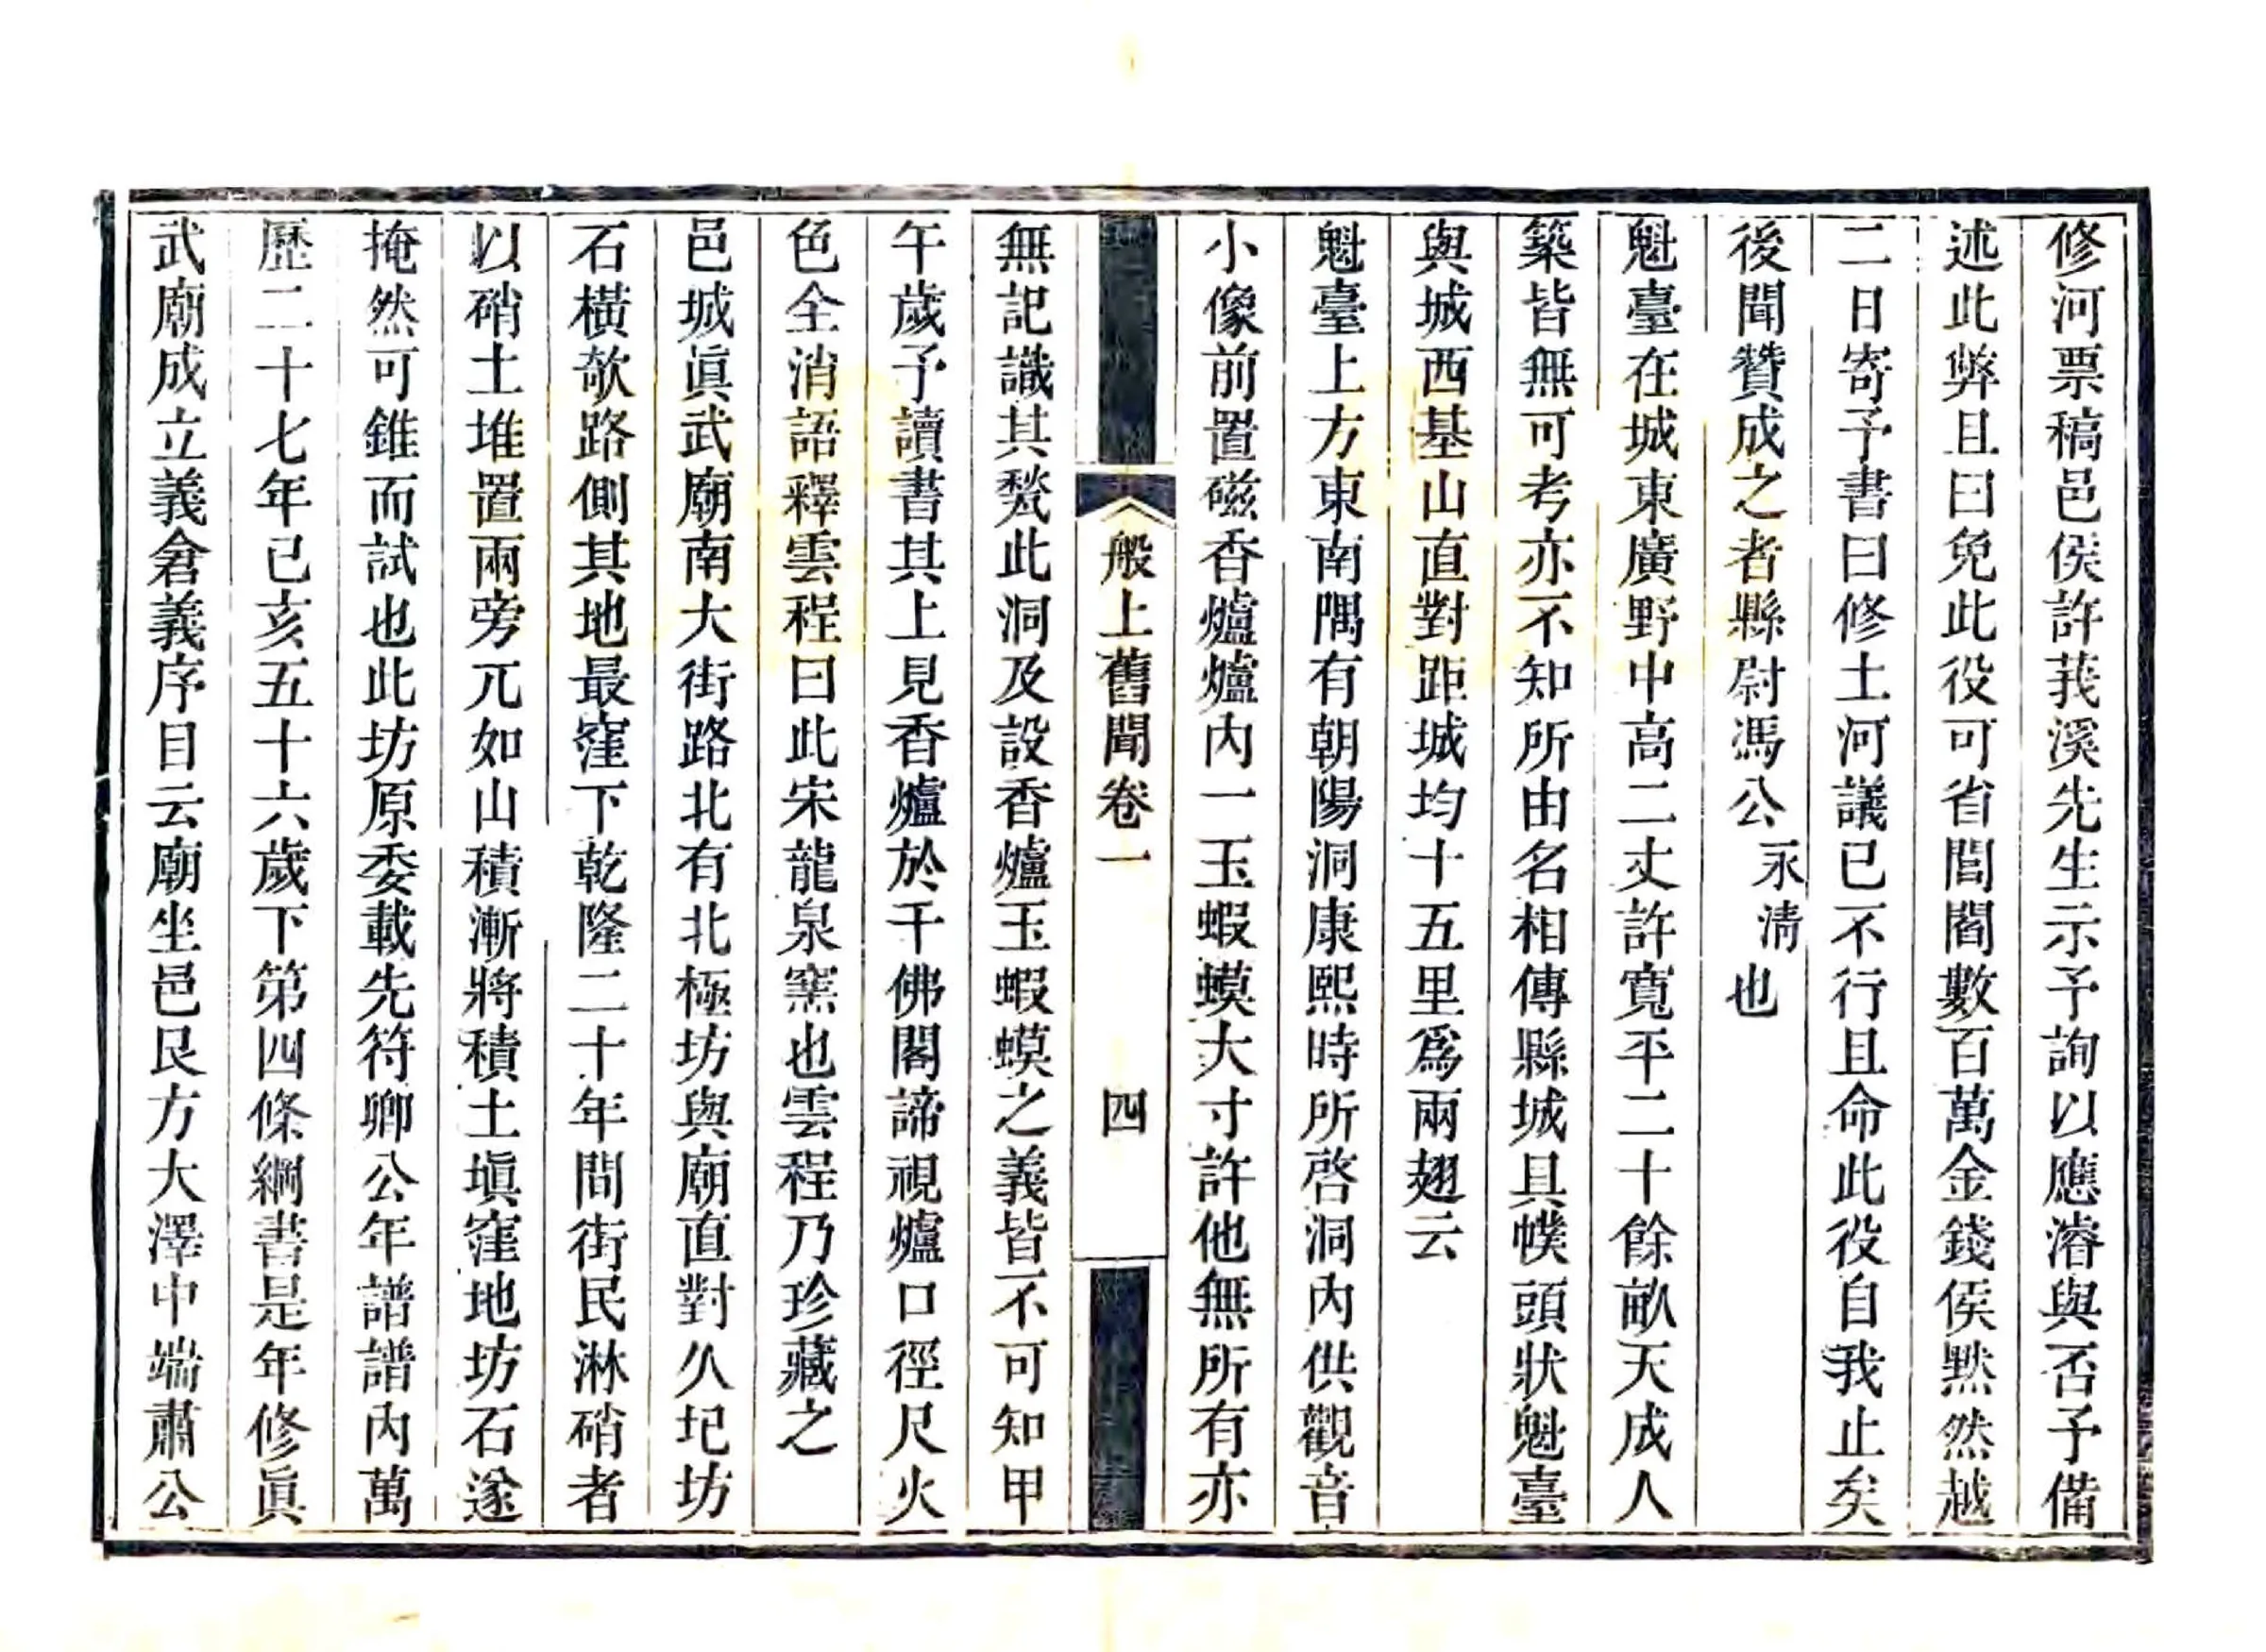 修河票稿邑侯許莪溪先生示予詢以應濬與否予備
述此弊且曰免此役可省閭閻數百萬金錢侯黙然越
二日寄予書曰修土河議已不行且命此役自我止矣
後聞贊成之者縣尉馮公永淸也
魁臺在城東廣野中高二丈許寬平二十餘畝天成人
築皆無可考亦不知所由名相傳縣城具幞頭狀魁臺
與城西基山直對距城均十五里爲兩翅云
魁臺上方東南隅有朝陽洞康熙時所啓洞內供觀音
小像前置磁香爐爐內一玉蝦蟆大寸許他無所有亦
無記識其㼽此洞及設香爐玉蝦蟆之義皆不可知甲
午歲予讀書其上見香爐於千佛閣諦視爐口徑尺火
色全消語釋雲程曰此宋龍泉窯也雲程乃珍藏之
邑城眞武廟南大街路北有北極坊與廟直對久圮坊
石橫欹路側其地最窪下乾隆二十年間街民淋硝者
以硝土堆置兩旁兀如山積漸將積土塡窪地坊石遂
掩然可錐而試也此坊原委載先符卿公年譜譜內萬
歷二十七年己亥五十六歲下第四條綱書是年修眞
武廟成立義倉義序目云廟坐邑艮方大澤中端肅公
般上舊聞卷一
四